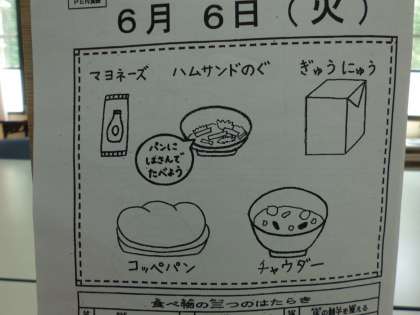 PEN
6月 6日 (火)
マヨネーズ
ハムサンドのぐ
ぎゅうにゅう
パンに
はさんで
たべよう
コッペパン
チャウダー
食べ物の三つのはたらき